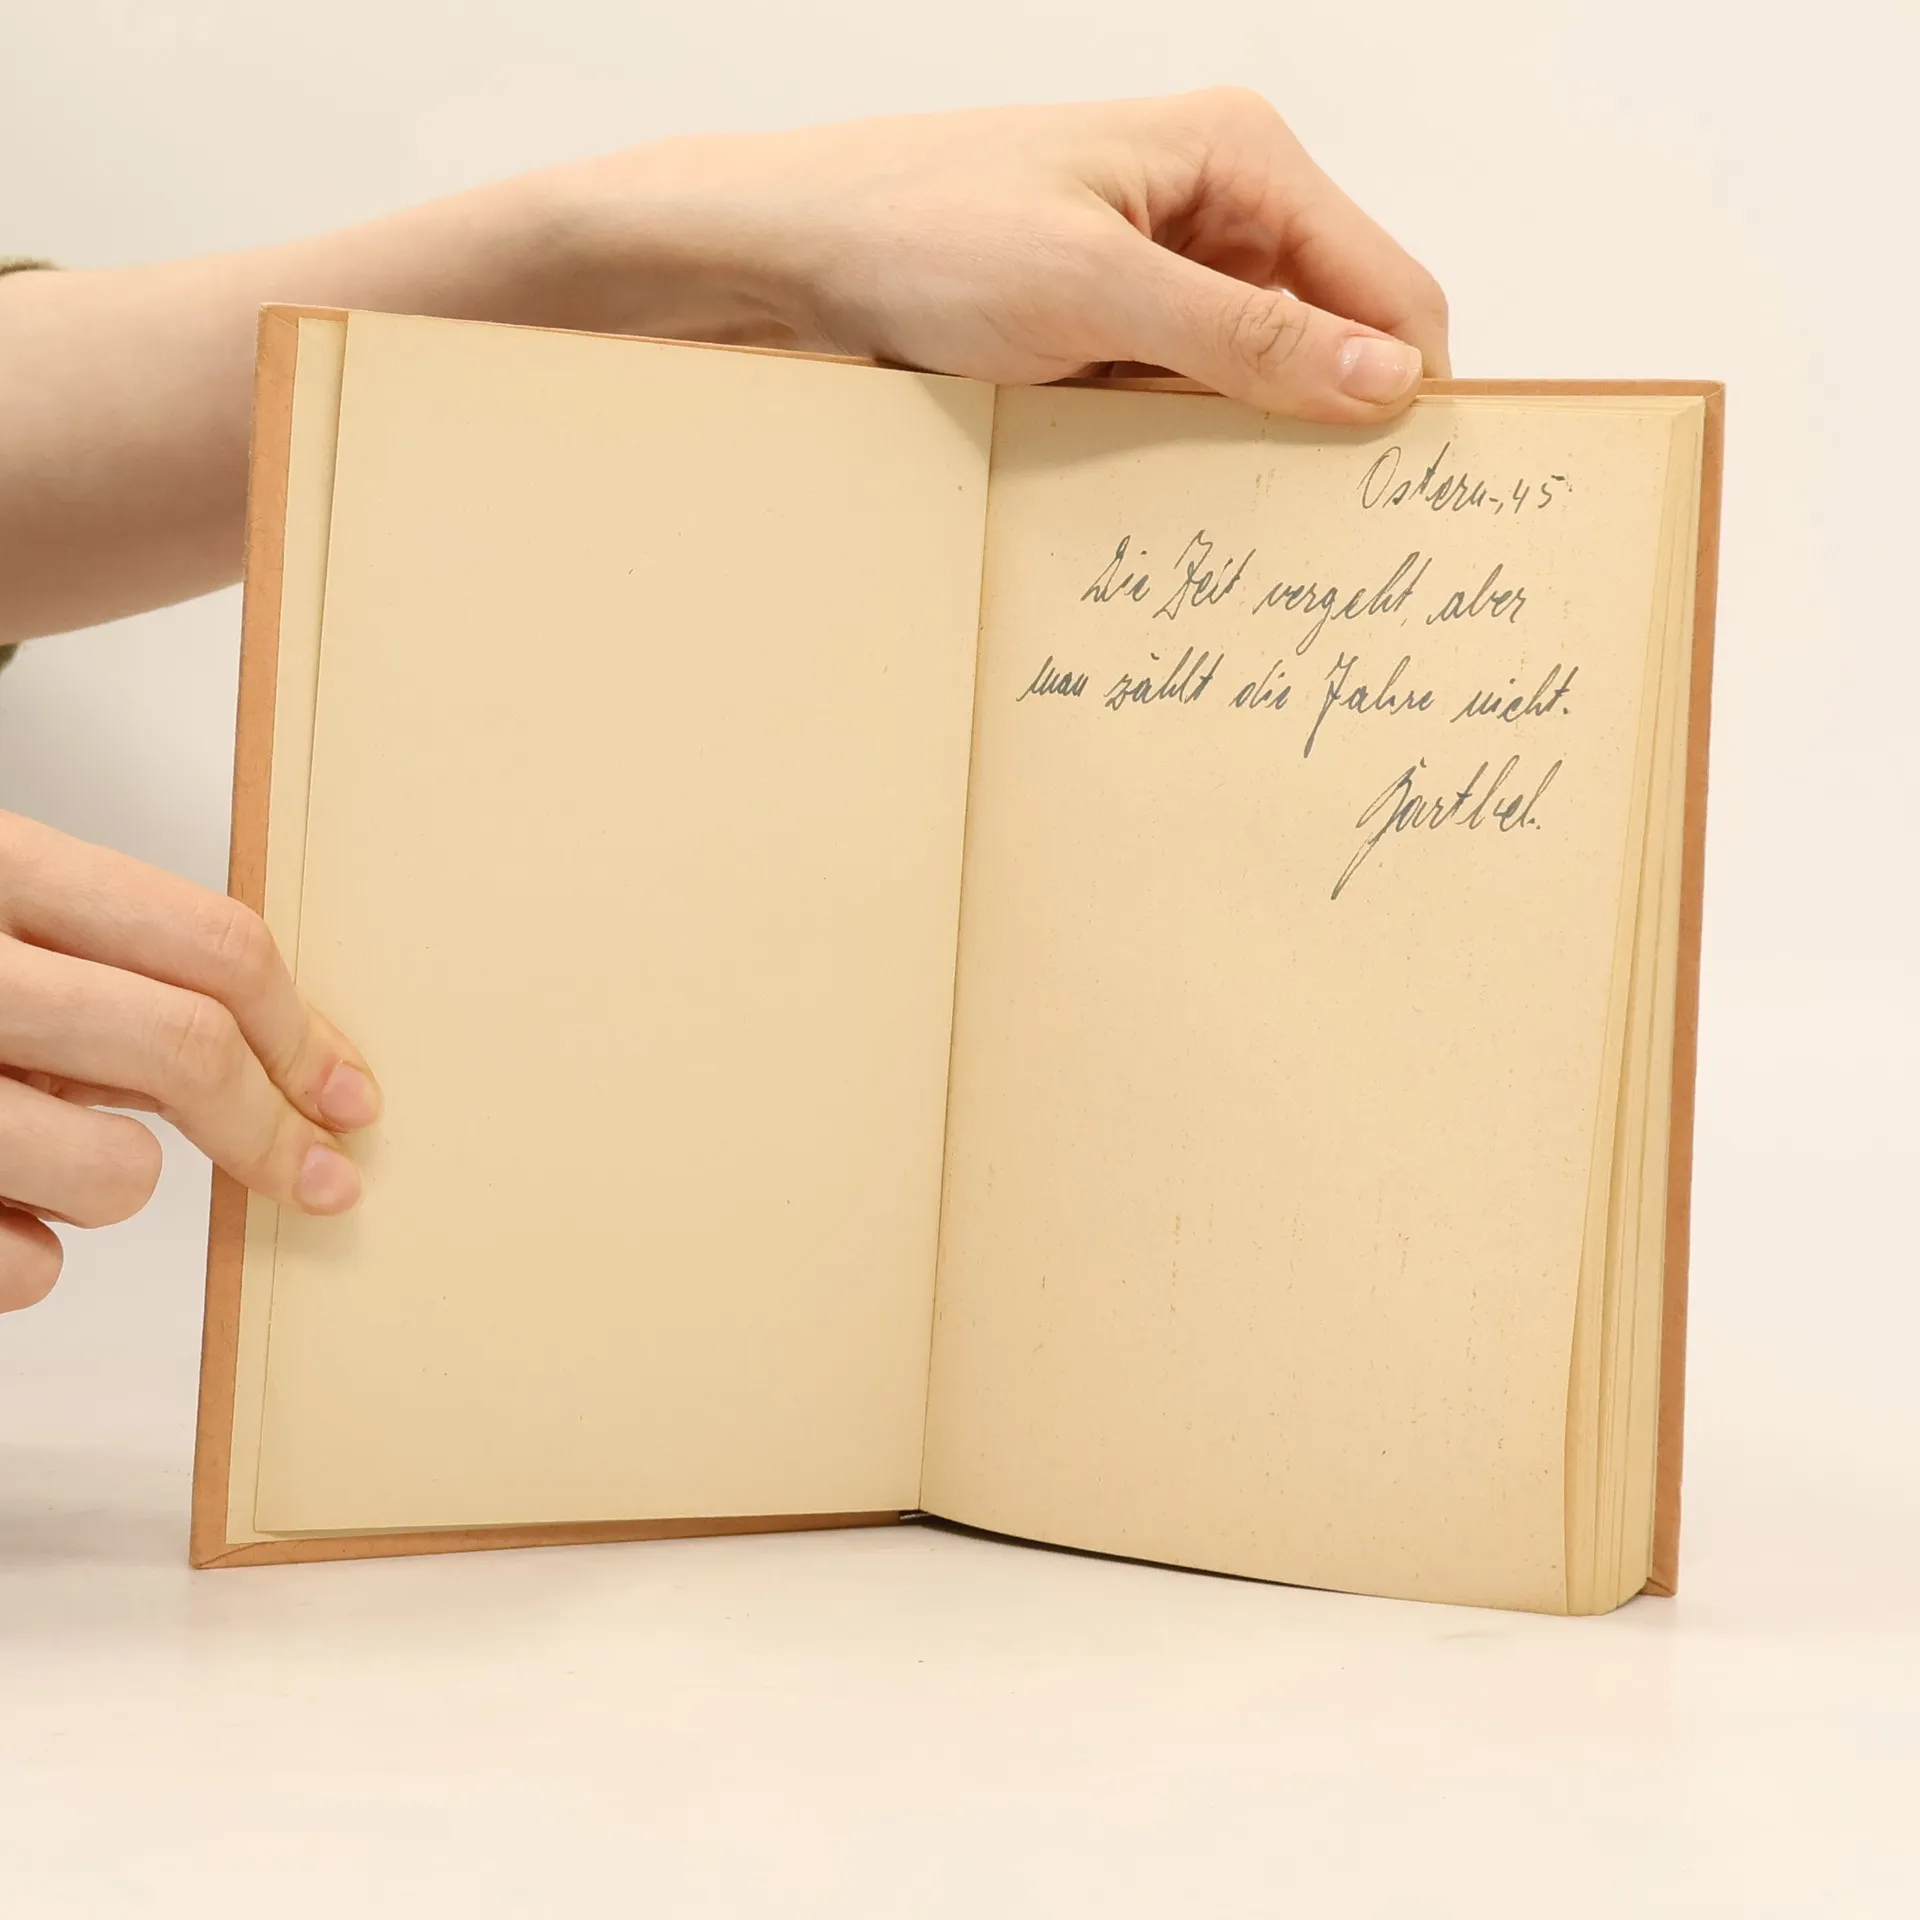 Ostern, 45
Die Zeit vergeht, aber
man zählt die Jahre nicht.